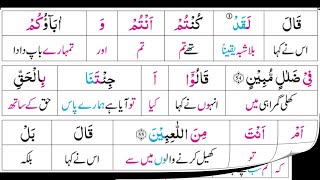 قَالَ لَقَدْ ① كُنْتُمْ اَنْتُمْ وَ اٰبَآؤُكُمْ
اس نے کہا بلاشبہ یقیناً تھے تم تم اور تمہارے باپ دادا
فِيْ ضَلٰلٍ مُّبِيْنٍ قَالُوْٓا اَ جِئْتَنَا بِالْحَقِّ
کھلی گمراہی میں انہوں نے کہا کیا تو آیا ہے ہمارے پاس حق کے ساتھ
اَمْ اَنْتَ مِنَ اللّٰعِبِيْنَ قَالَ بَلْ
تو کھیل کرنے والوں میں سے اس نے کہا بلکہ